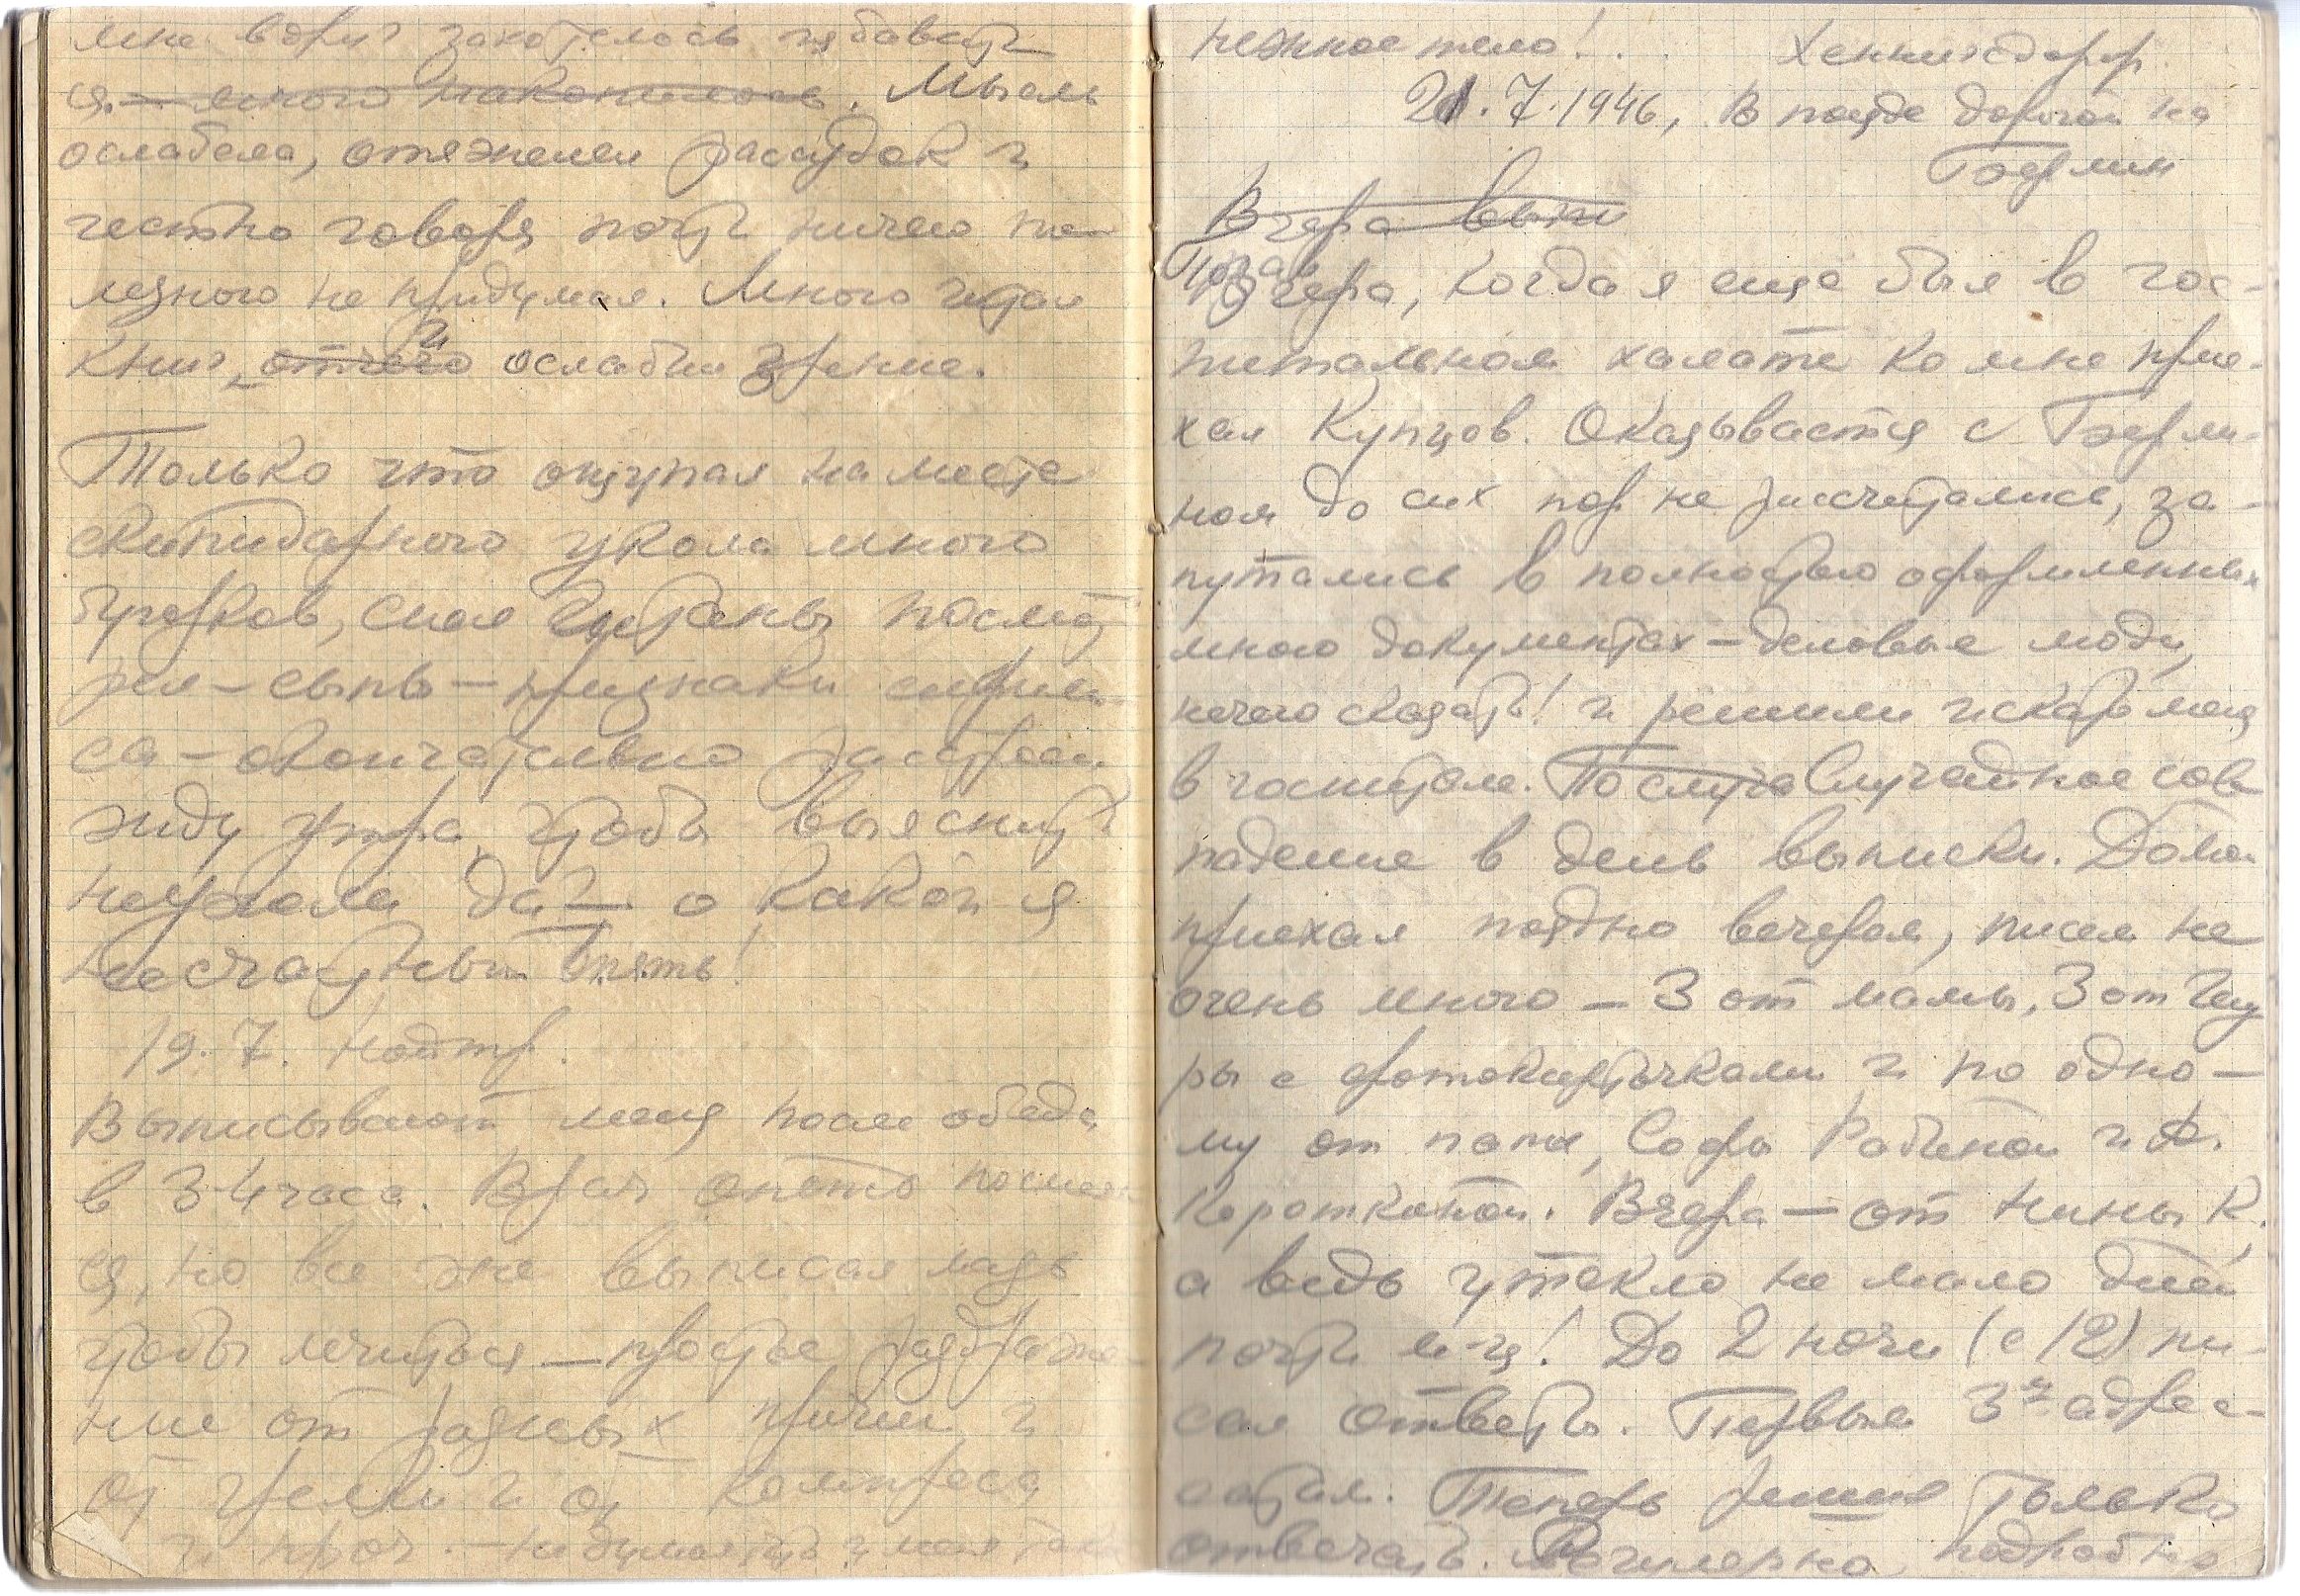 мне вдруг захотелось избавить
ся. – много накопилось. Мысль
ослабела, отяжелел рассудок и
честно говоря почти ничего по
лезного не придумал. Много читал
книг, отчего и ослабил зрение.
Только что ощупал на месте
скипидарного укола много
бугорков, снял штаны посмот
рел – сыпь – признаки сифили
са – окончательно расстроен
жду утра, чтобы выяснить
неужели да? – о какой я
несчастный опять!
19.7.
Выписывают меня после обеда,
в 3-4 часа. Врач опять посмеял
ся, но все же выписал мазь
чтобы лечиться – простое раздраже
ние от разных причин, и
от грелки и от компреса
и проч. –
нежное тело!
Хеннигсдорф.
21.7.1946, В поезде дорогой на
Бэрлин
Вчера
Позавчера, когда я еще был в гос-
питальном халате ко мне прие-
хал Купцов. Оказывается с Бэрли-
ном до сих пор не рассчитались, за-
путались в полностью оформленных
мною документах – деловые люди,
нечего сказать! и решили искать меня
в госпитале. Случайное сов
падение в день выписки. Домой
приехал поздно вечером, писем не
очень много – 3 от мамы, 3 от Ню
ры с фотокарточками и по одно-
му от папы, Софы Рабиной и
Короткиной. Вчера – от Нины К,
а ведь утекло не мало дней
почти м-ц! До 2 ночи (с 12) пи-
сал ответы. Первые 3 адрес-
Теперь решил только
отвечать. подробно